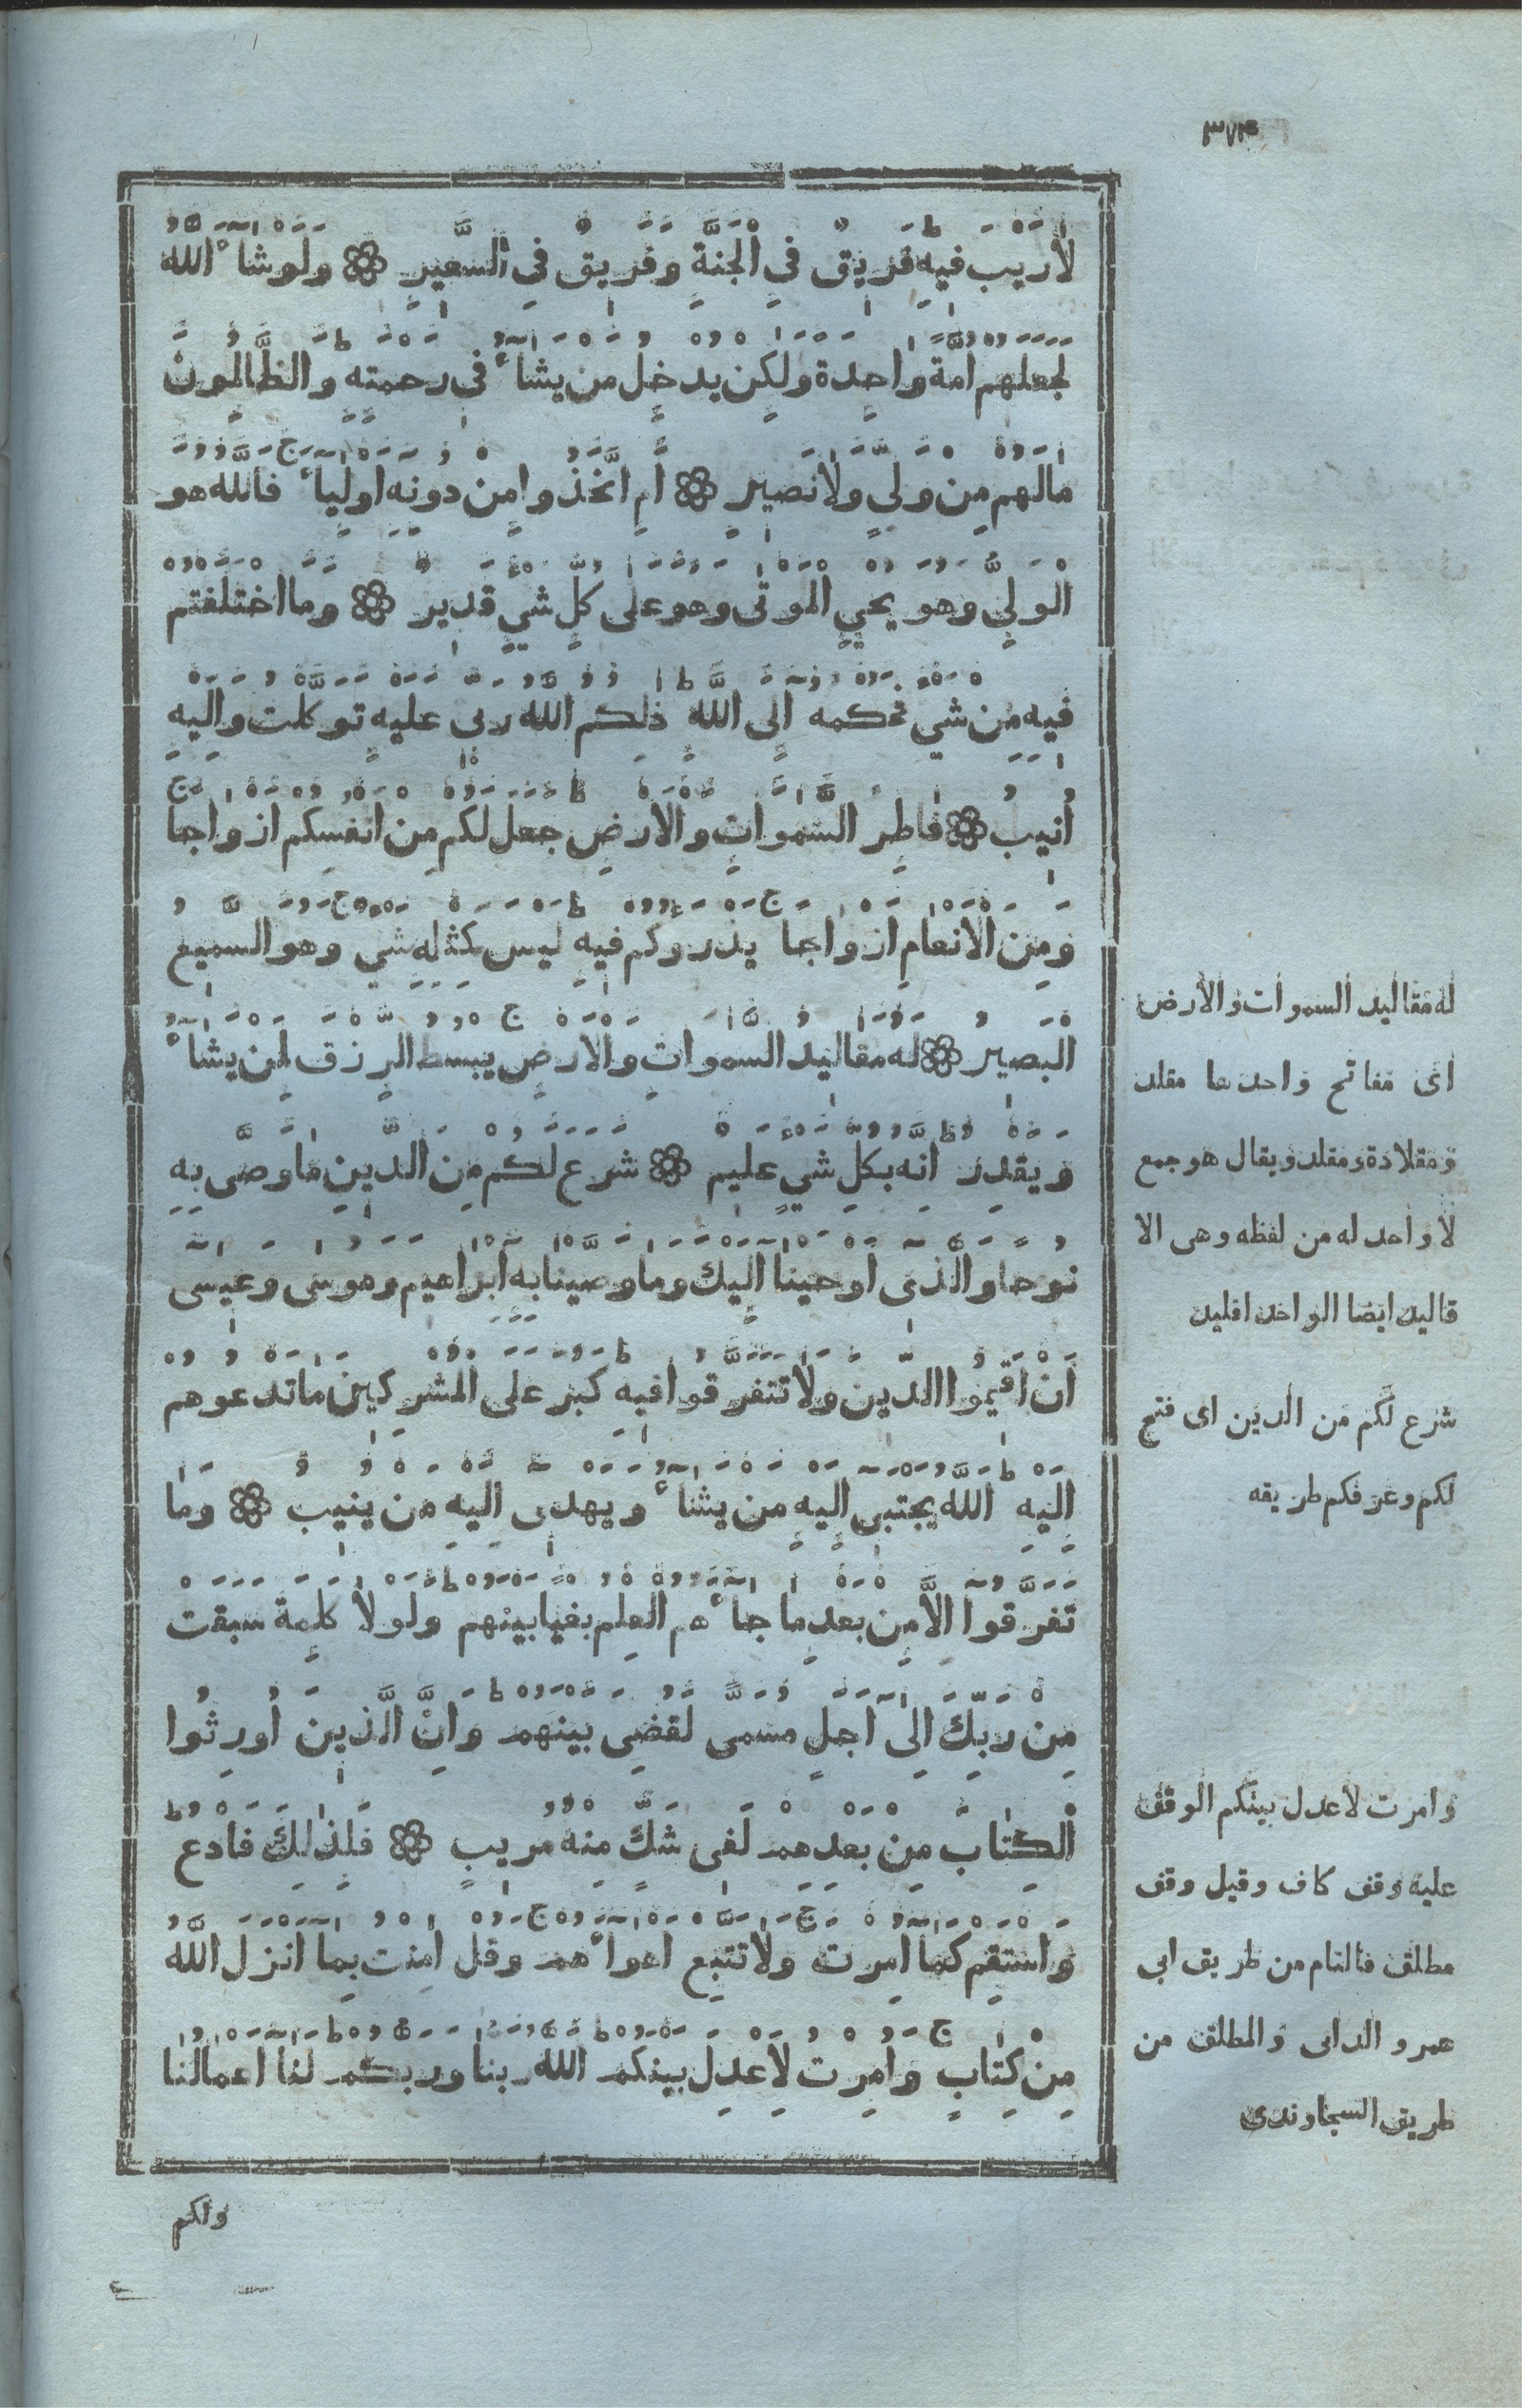 ٣٧٤
لا ريب فيه فريق فى الجنة وفريق فى السعير ولو شاء الله
لجعلهم امة واحدة ولكن يدخل من يشاء فى رحمته والظالمون
مالهم من ولى ولا نصير ام اتخذوا من دونه اولياء فالله هو
الولى وهو يحيي الموتى وهو على كل شي قدير وما اختلفتم
فيه من شي فحكمه الى الله ذلكم الله ربى عليه توكلت واليه
انيب فاطر السموات والارض جعل لكم من انفسكم ازواجا
ومن الانعام ازواجا يذرؤكم فيه ليس كمثله شي وهو السميع
البصير له مقاليد السموات والارض يبسط الرزق لمن يشاء
ويقدر انه بكل شي عليم شرع لكم من الدين ما وصى به
نوحا والذى اوحينا اليك وما وصينا به ابراهيم وموسى وعيسى
ان اقيموا الدين ولا تتفرقوا فيه كبر على المشركين ما تدعوهم
اليه الله يجتبى اليه من يشاء ويهدى اليه من ينيب وما
تفرقوا الا من بعد ما جاءهم العلم بغيا بينهم ولولا كلمة سبقت
من ربك الى اجل مسمى لقضى بينهم وان الذين اورثوا
الكتاب من بعدهم لفى شك منه مريب فلذلك فادع
واستقم كما امرت ولا تتبع اهواءهم وقل امنت بما انزل الله
من كتاب وامرت لاعدل بينكم الله ربنا وربكم لنا اعمالنا
ولكم
له مقاليد السموات والارض
اى مفاتح واحدها مقلد
ومقلادة ومقلد ويقال هو جمع
لا واحد له من لفظه وهى الا
قاليد ايضا الواحد اقليد
شرع لكم من الدين اى فتح
لكم وعرفكم طريقه
وامرت لاعدل بينكم الوقف
عليه وقف كاف وقيل وقف
مطلق فالتام من طريق ابى
عمرو الدانى والمطلق من
طريق السجاوندى